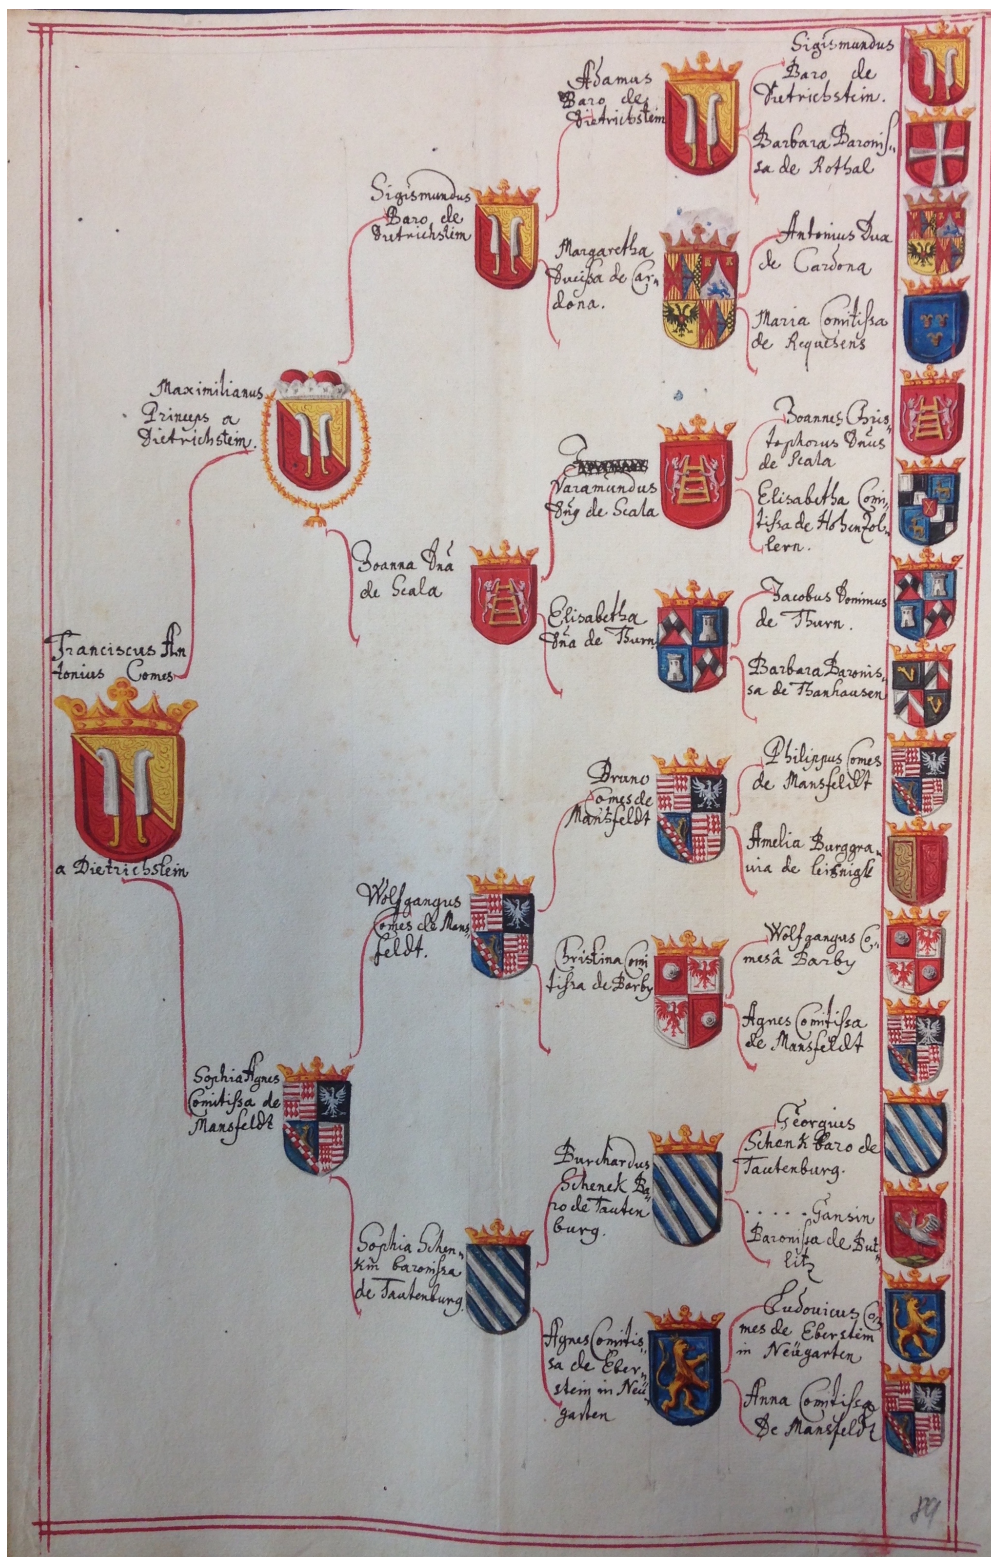 Franciscus An
tonius Comes
a Dietrichstein
Maximilianus
Princeps a
Dietrichstein.
Sophia Agnes
Comitissa de
Mansfeldt
Sigismundus
Baro de
Dietrichstein
Joanna Dnã
de Scala
Wolfgangus
Comes de Mans
feldt.
Sophia Schen-
kin baronissa
de Tautenburg.
Adamus
Baro de
Dietrichstein
Margaretha
Ducissa de Car-
dona.
Varamundus
Dnq de Scala
Elisabetha
Dña de Thurn
Bruno
Comes de
Mansfeldt
Christina Comi
tissa de Barby
Burchardus
Schenck Ba-
ro de Tauten
burg.
Agnes Comitis-
sa de Eber-
stein in Neü-
garten
Sigismundus
Baro de
Dietrichstein.
Barbara Baronis-
sa de Rothal
Antonius Dux
de Cardona
Maria Comitissa
de Requesens
Joannes Chris-
tophorus Dnus
de Scala
Elisabetha Comi-
tissa de Hohenzol-
lern.
Jacobus Dominus
de Thurn.
Barbara Baronis-
sa de Thanhausen
Philippus Comes
de Mansfeldt
Amelia Burggra-
uia de leisnigk
Wolfgangus Co-
mes â Barby
Agnes Comitissa
de Mansfeldt
Georgius
Schenk baro de
Tautenburg.
. . . . . Gansin
Baronissa de But-
litz
Ludouicus Co-
mes de Eberstein
in Neügarten
Anna Comitissa
De Mansfeldt
89